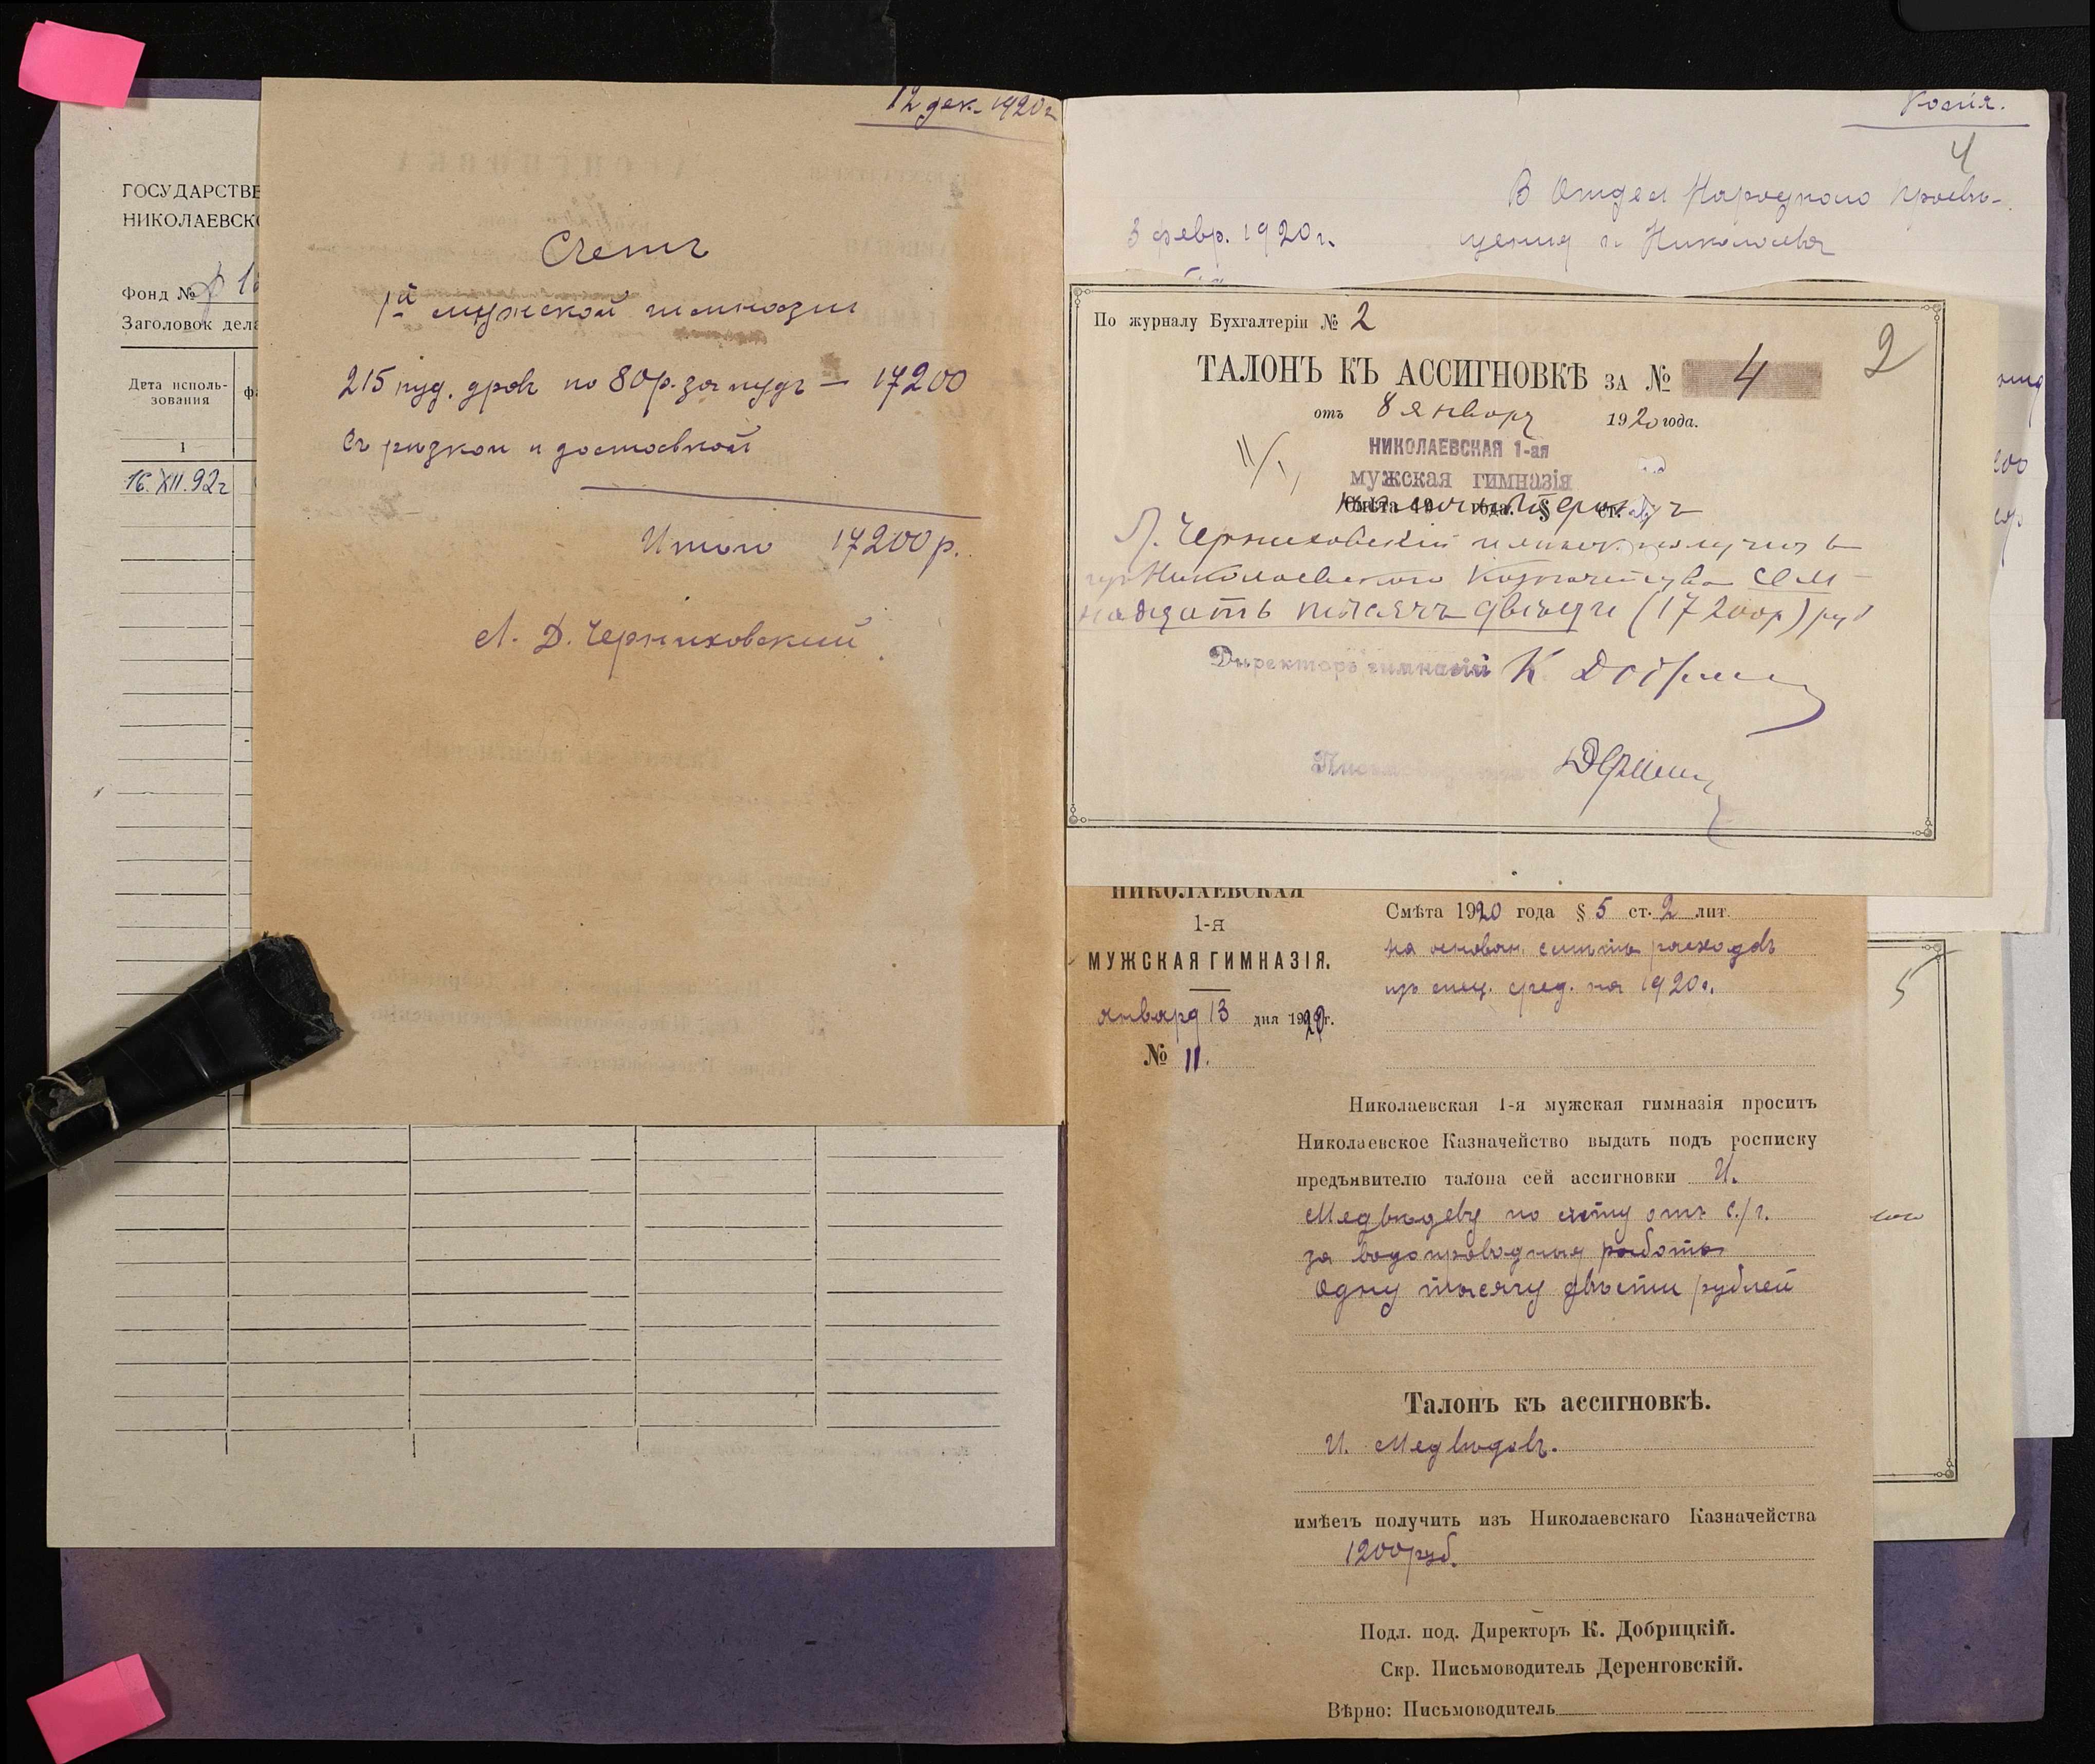 ГОСУДАРСТВЕ
НИКОЛАЕВСК
Фонд №
Заголовок дела
Дата исполь-
зования
1
16.XII.92г
12 дек. 1920г
Счетъ
1й мужской гимназии
215 пуд. дровъ по 80р. за пудъ — 17200
Съ рѣзкой и доставкой
Итого 17200р.
Л. Д. Черниховский
Копія.
4
В Отдел Народного Просве-
3 февр. 1920г.
щения г. Николаева
По журналу Бухгалтеріи № 2
2
ТАЛОНЪ КЪ АССИГНОВКѢ ЗА № 4
отъ 8 январ 1920 года.
НИКОЛАЕВСКАЯ 1-ая
мужская гимназія
Смѣта 19 года. § ст.
Л. Черниховскій имѣетъ получить
изъ Николаевского Казначейства сем-
надцать тысячъ двѣсти (17200р) руб
Директоръ гимназіи К. Добриц
НИКОЛАЕВСКАЯ
1-я
МУЖСКАЯ ГИМНАЗІЯ.
января 13 дня 1920г.
№ 11.
Смѣта 1920 года § 5 ст. 2 лит.
на основан. смѣты расходовъ
изъ спец. сред. на 1920г.
5
Николаевская 1-я мужская гимназія проситъ
Николаевское Казначейство выдать подъ росписку
предъявителю талона сей ассигновки И.
Медвѣдеву по счету отъ с./г.
за водопроводныя работы
Одну тысячу двѣсти рублей
Талонъ къ ассигновкѣ.
И. Медвѣдевъ.
имѣетъ получить изъ Николаевскаго Казначейства
1200 руб.
Подл. под. Директоръ К. Добрицкій.
Скр. Письмоводитель Деренговскій.
Вѣрно: Письмоводитель